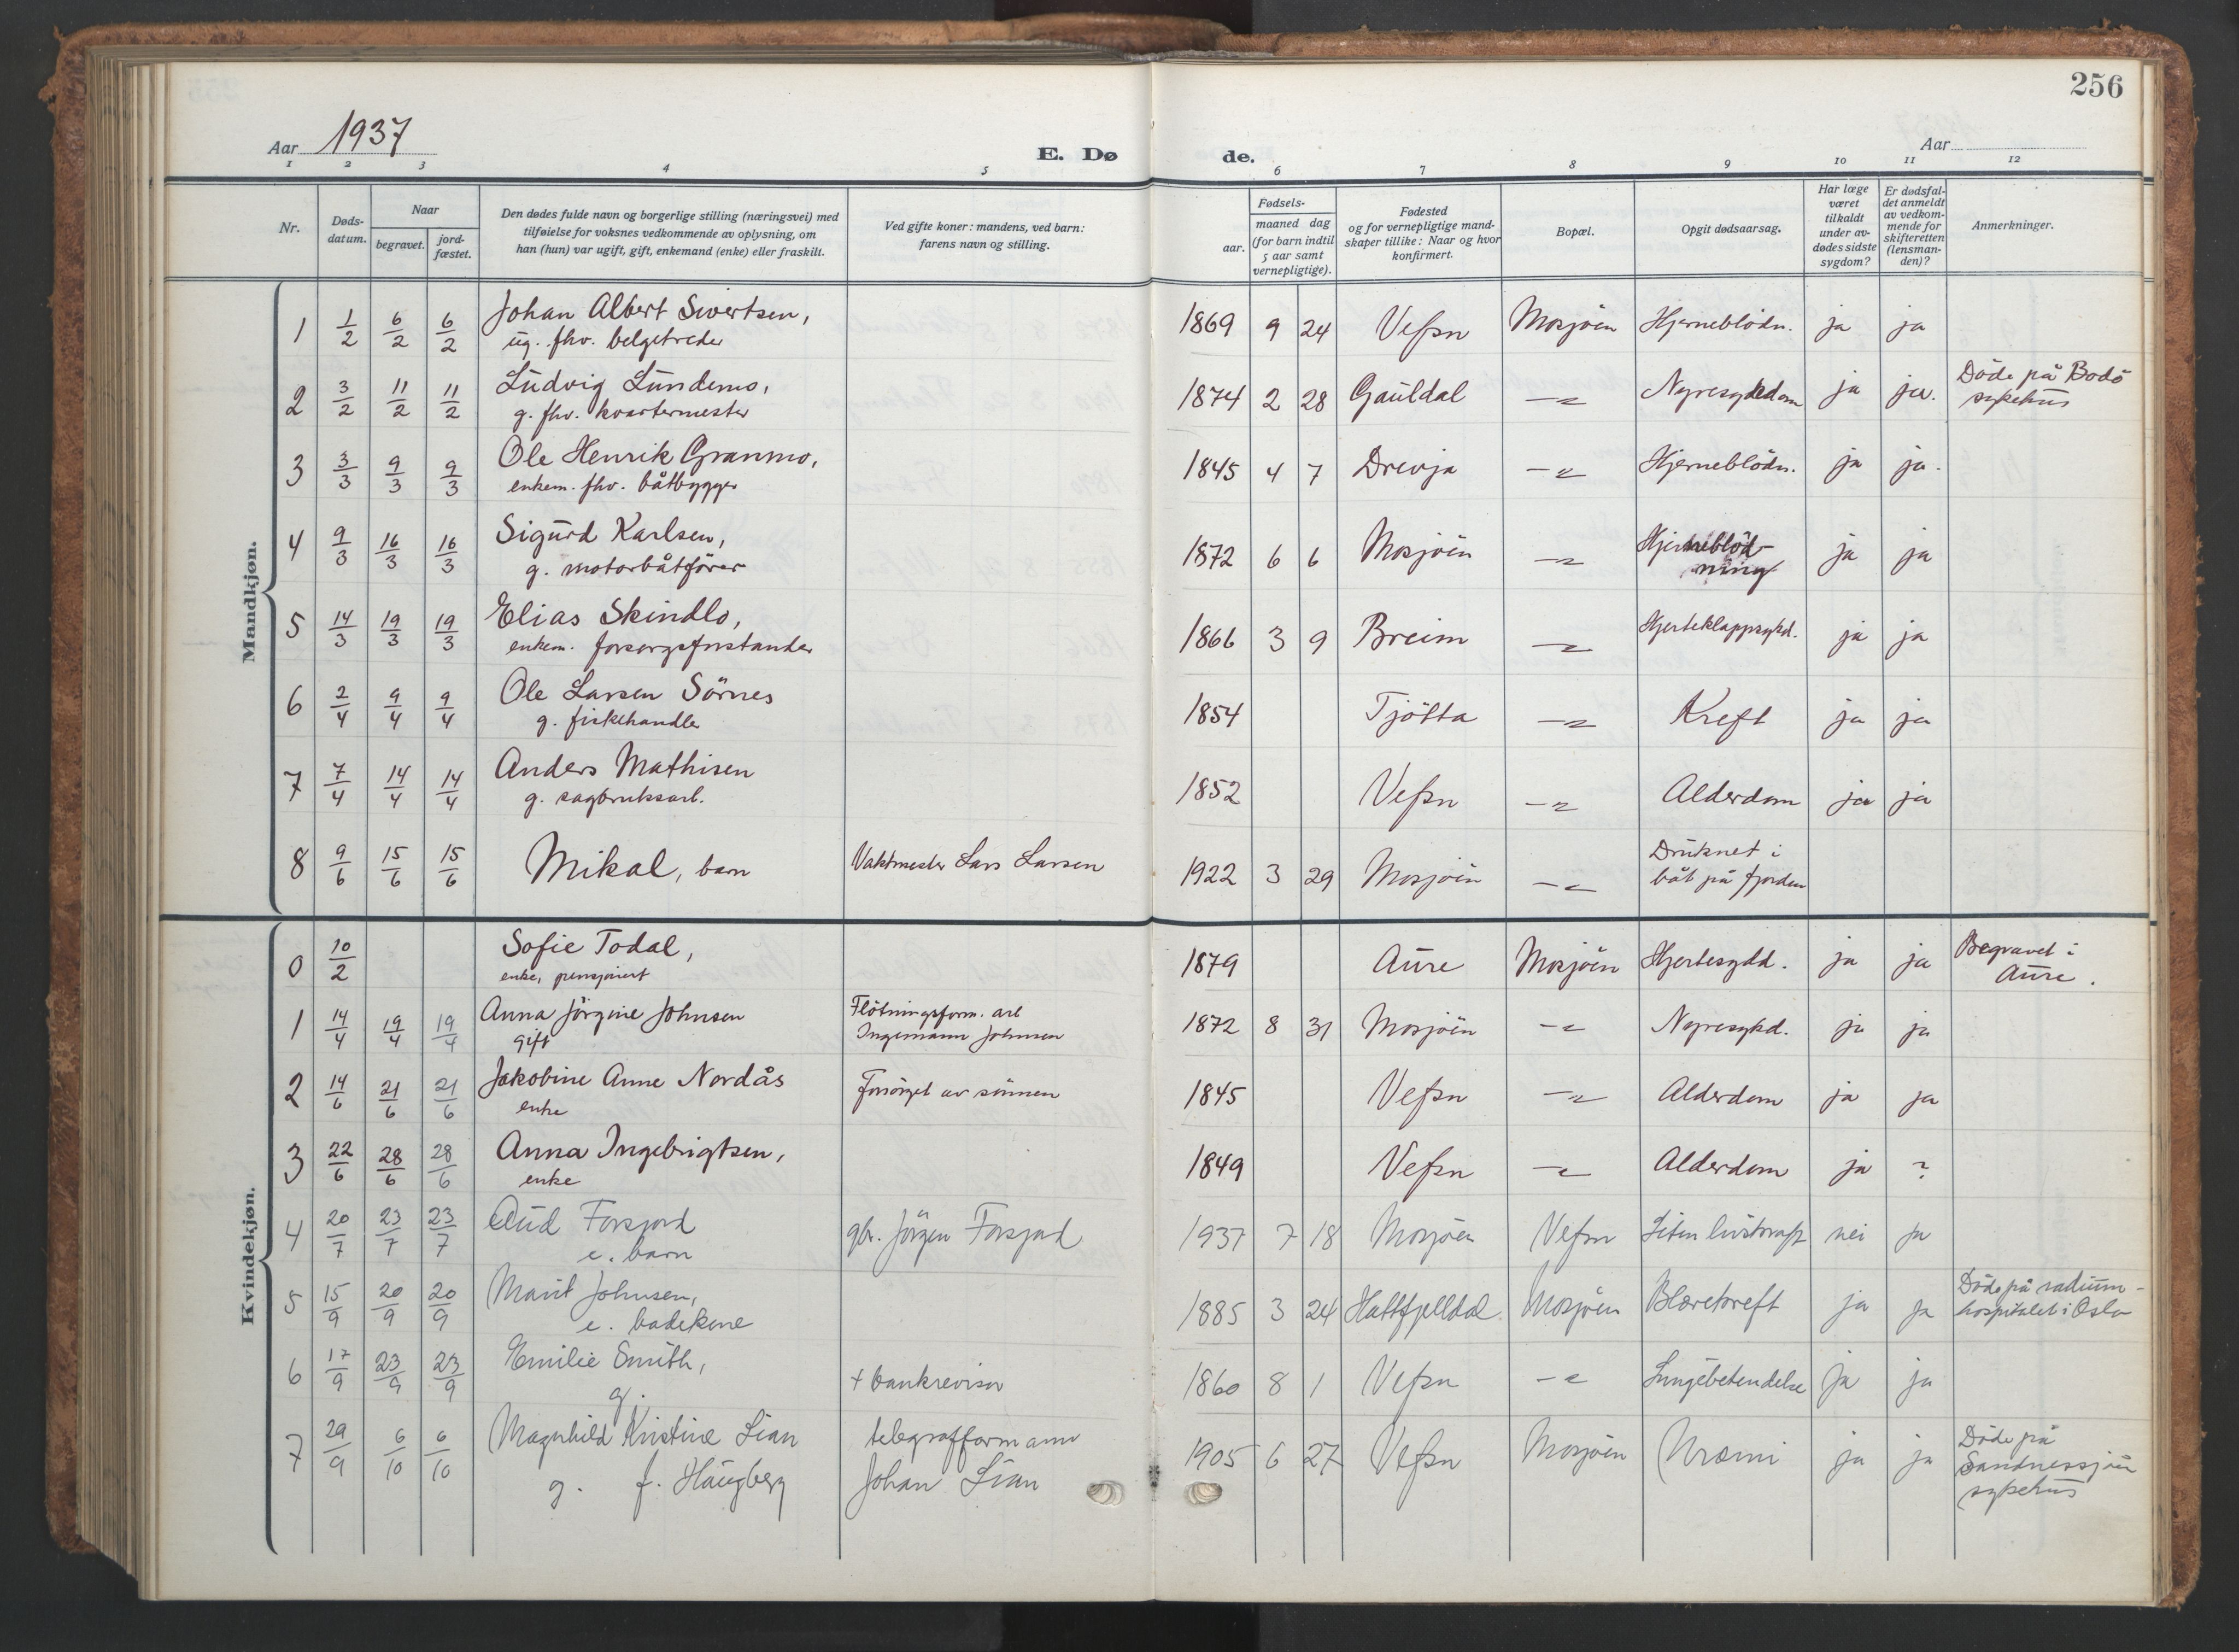 256
Aar 1937
E. Dø de.
Aar
1 2 3 4 5 6 7 8 9 10 11 12
Nr.
Døds-
datum.
Naar
begravet.
jord-
fæstet.
Den dødes fulde navn og borgerlige stilling (næringsvei) med
tilføielse for voksnes vedkommende av oplysning, om
han (hun) var ugift, gift, enkemand (enke) eller fraskilt.
Ved gifte koner: mandens, ved barn:
farens navn og stilling.
Fødsels-
aar.
maaned dag
(for barn indtil
5 aar samt
vernepligtige).
Fødested
og for vernepligtige mand-
skaper tillike: Naar og hvor
konfirmert.
Bopæl.
Opgit dødsaarsag.
Har læge
været
tilkaldt
under av-
dødes sidste
sygdom?
Er dødsfal-
det anmeldt
av vedkom-
mende for
skifteretten
(lensman-
den)?
Anmerkninger.
Mandkjøn.
1 1/2 6/2 6/2 Johan Albert Sivertsen, 1869 9 24 Vefsn Mosjöen Hjerneblödn. ja ja
ug. fhv. belgetreder
2 3/2 11/2 11/2 Ludvig Lundemo, 1874 2 28 Gauldal –"– Nyresykdom ja ja. Döde på Bodö
g. fhv. kvartermester sykehus
3 3/3 9/3 9/3 Ole Henrik Granmo, 1845 4 7 Drevja –"– Hjerneblödn. ja ja.
enkem. fhv. båtbygger
4 9/3 16/3 16/3 Sigurd Karlsen, 1872 6 6 Mosjöen –"– Hjerneblöd- ja ja
g. motorbåtförer ning
5 14/3 19/3 19/3 Elias Skindlo, 1866 3 9 Breim –"– Hjerteklappsykd. ja ja
enkem. forsorgsforstander
6 2/4 9/4 9/4 Ole Larsen Sörnes 1854 Tjötta –"– Kreft ja ja
g. fiskehandler
7 7/4 14/4 14/4 Anders Mathisen 1852 Vefsn –"– Alderdom ja ja
g. sagbruksarb.
8 9/6 15/6 15/6 Mikal, barn Vaktmester Lars Larsen 1922 3 29 Mosjöen –"– Druknet i
båt på fjorden
Kvindekjøn.
0 10/2 Sofie Todal, 1879 Aure Mosjöen Hjertesykd. ja ja Begravet i
enke, pensjonert Aure.
1 14/4 19/4 19/4 Anna Jörgine Johnsen Flötningsform. arb 1872 8 31 Mosjöen –"– Nyresykd. ja ja
gift Ingemann Johnsen
2 14/6 21/6 21/6 Jakobine Anne Nordås Forsörget av sönnen 1845 Vefsn –"– Alderdom ja ja
enke
3 22/6 28/6 28/6 Anna Ingebrigtsen, 1849 Vefsn –"– Alderdom ja ?
enke
4 20/7 23/7 23/7 Aud Forsjord gbr. Jörgen Forsjord 1937 7 18 Mosjöen Vefsn Liten livskraft nei ja
e. barn
5 15/9 20/9 20/9 Marit Johnsen, 1885 3 24 Hattfjelldal Mosjöen Blærekreft ja ja Döde på radium-
e. badekone hospitalet i Oslo
6 17/9 23/9 23/9 Emilie Smith, + bankrevisor 1860 8 1 Vefsn –"– Lungebetendelse ja ja
g.
7 29/9 6/10 6/10 Magnhild Kristine Lian telegrafformann 1905 6 27 Vefsn Mosjöen Uræmi ja ja Döde på
g. f. Haugberg Johan Lian Sandnessjöen
sykehus